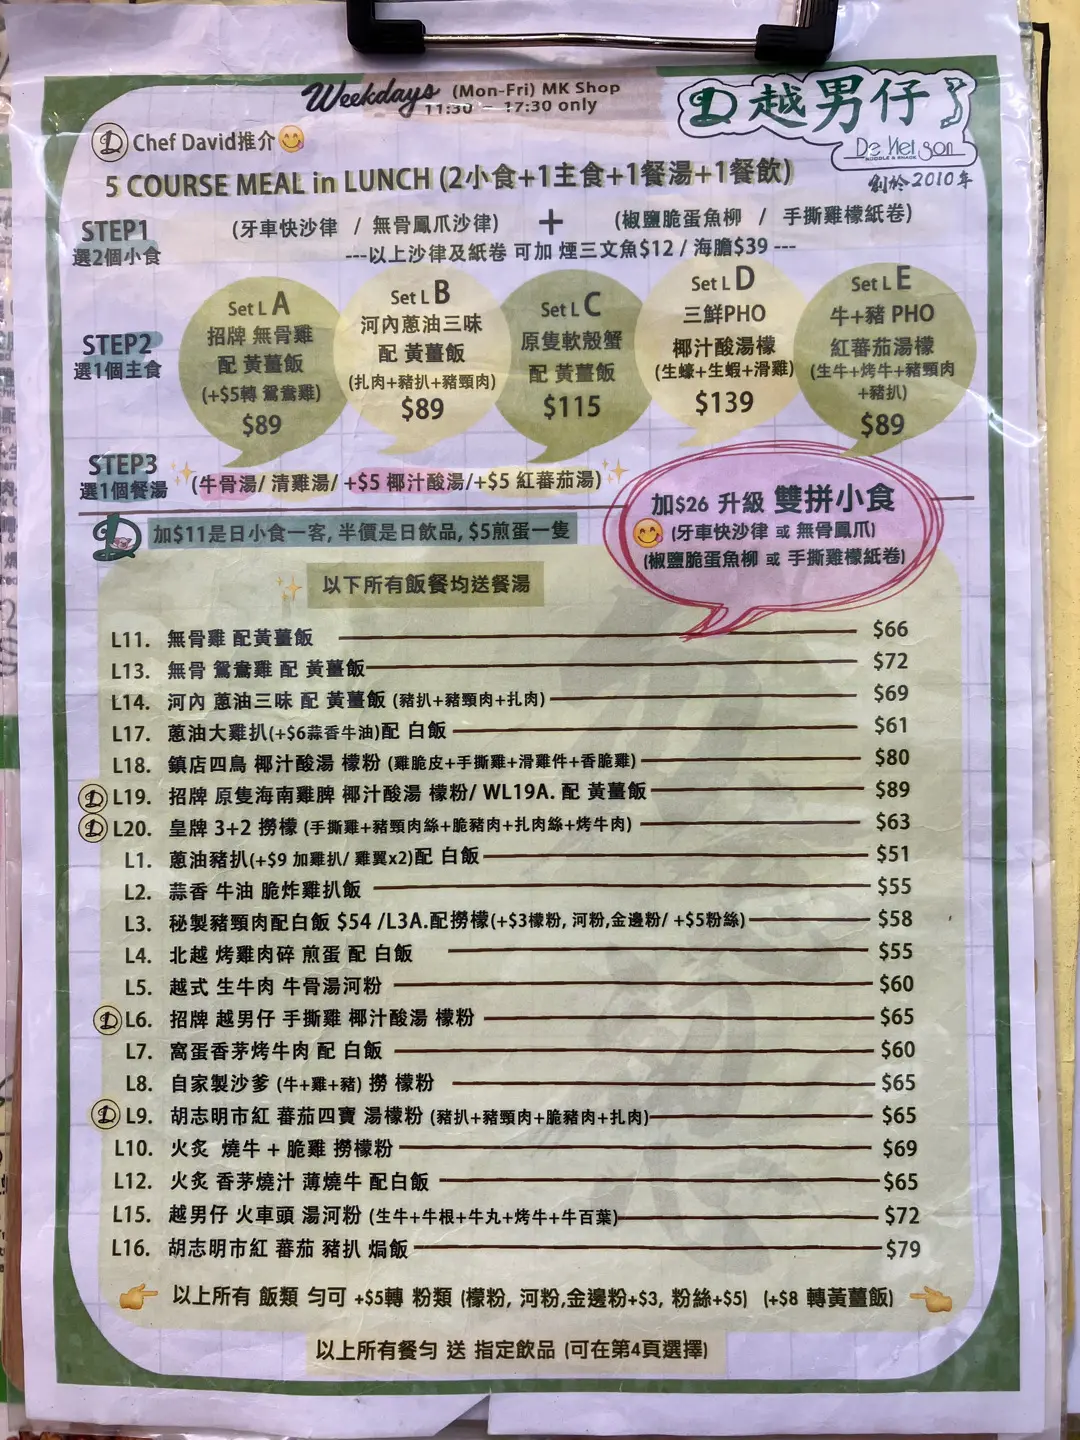 Weekdays (Mon-Fri) MK Shop
11:30 - 17:30 only
越男仔
De Nel son
NOODLE & SNACK
創於2010年
Chef David推介
5 COURSE MEAL in LUNCH (2小食+1主食+1餐湯+1餐飲)
STEP1 (牙車快沙律 / 無骨鳳爪沙律) + (椒鹽脆蛋魚柳 / 手撕雞檬紙卷)
選2個小食
---以上沙律及紙卷 可加 煙三文魚$12 / 海膽$39 ---
STEP2
選1個主食
Set L A
招牌 無骨雞
配 黃薑飯
(+$5轉 鴛鴦雞)
$89
Set L B
河內蔥油三味
配 黃薑飯
(扎肉+豬扒+豬頸肉)
$89
Set L C
原隻軟殼蟹
配 黃薑飯
$115
Set L D
三鮮PHO
椰汁酸湯檬
(生蠔+生蝦+滑雞)
$139
Set L E
牛+豬 PHO
紅蕃茄湯檬
(生牛+烤牛+豬頸肉
+豬扒)
$89
STEP3
選1個餐湯
(牛骨湯/ 清雞湯/ +$5 椰汁酸湯/+$5 紅蕃茄湯)
加$26 升級 雙拼小食
(牙車快沙律 或 無骨鳳爪)
(椒鹽脆蛋魚柳 或 手撕雞檬紙卷)
加$11是日小食一客, 半價是日飲品, $5煎蛋一隻
以下所有飯餐均送餐湯
L11. 無骨雞 配黃薑飯 $66
L13. 無骨 鴛鴦雞 配 黃薑飯 $72
L14. 河內 蔥油三味 配 黃薑飯 (豬扒+豬頸肉+扎肉) $69
L17. 蔥油大雞扒(+$6蒜香牛油)配 白飯 $61
L18. 鎮店四鳥 椰汁酸湯 檬粉 (雞脆皮+手撕雞+滑雞件+香脆雞) $80
L19. 招牌 原隻海南雞髀 椰汁酸湯 檬粉/ WL19A. 配 黃薑飯 $89
L20. 皇牌 3+2 撈檬 (手撕雞+豬頸肉絲+脆豬肉+扎肉絲+烤牛肉) $63
L1. 蔥油豬扒(+$9 加雞扒/ 雞翼x2)配 白飯 $51
L2. 蒜香 牛油 脆炸雞扒飯 $55
L3. 秘製豬頸肉配白飯 $54 /L3A.配撈檬(+$3檬粉, 河粉,金邊粉/ +$5粉絲) $58
L4. 北越 烤雞肉碎 煎蛋 配 白飯 $55
L5. 越式 生牛肉 牛骨湯河粉 $60
L6. 招牌 越男仔 手撕雞 椰汁酸湯 檬粉 $65
L7. 窩蛋香茅烤牛肉 配 白飯 $60
L8. 自家製沙爹 (牛+雞+豬) 撈 檬粉 $65
L9. 胡志明市紅 蕃茄四寶 湯檬粉 (豬扒+豬頸肉+脆豬肉+扎肉) $65
L10. 火炙 燒牛 + 脆雞 撈檬粉 $69
L12. 火炙 香茅燒汁 薄燒牛 配白飯 $65
L15. 越男仔 火車頭 湯河粉 (生牛+牛根+牛丸+烤牛+牛百葉) $72
L16. 胡志明市紅 蕃茄 豬扒 焗飯 $79
以上所有 飯類 勻可 +$5轉 粉類 (檬粉, 河粉,金邊粉+$3, 粉絲+$5) (+$8 轉黃薑飯)
以上所有餐勻 送 指定飲品 (可在第4頁選擇)